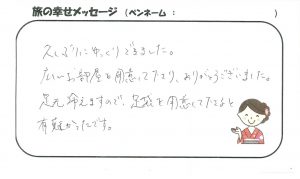 旅の幸せメッセージ (ペンネーム : )
久しぶりにゆっくりできました。
広いお部屋を用意して下さり、ありがとうございました。
足元冷えますので、足袋を用意して下さると
有難かったです。